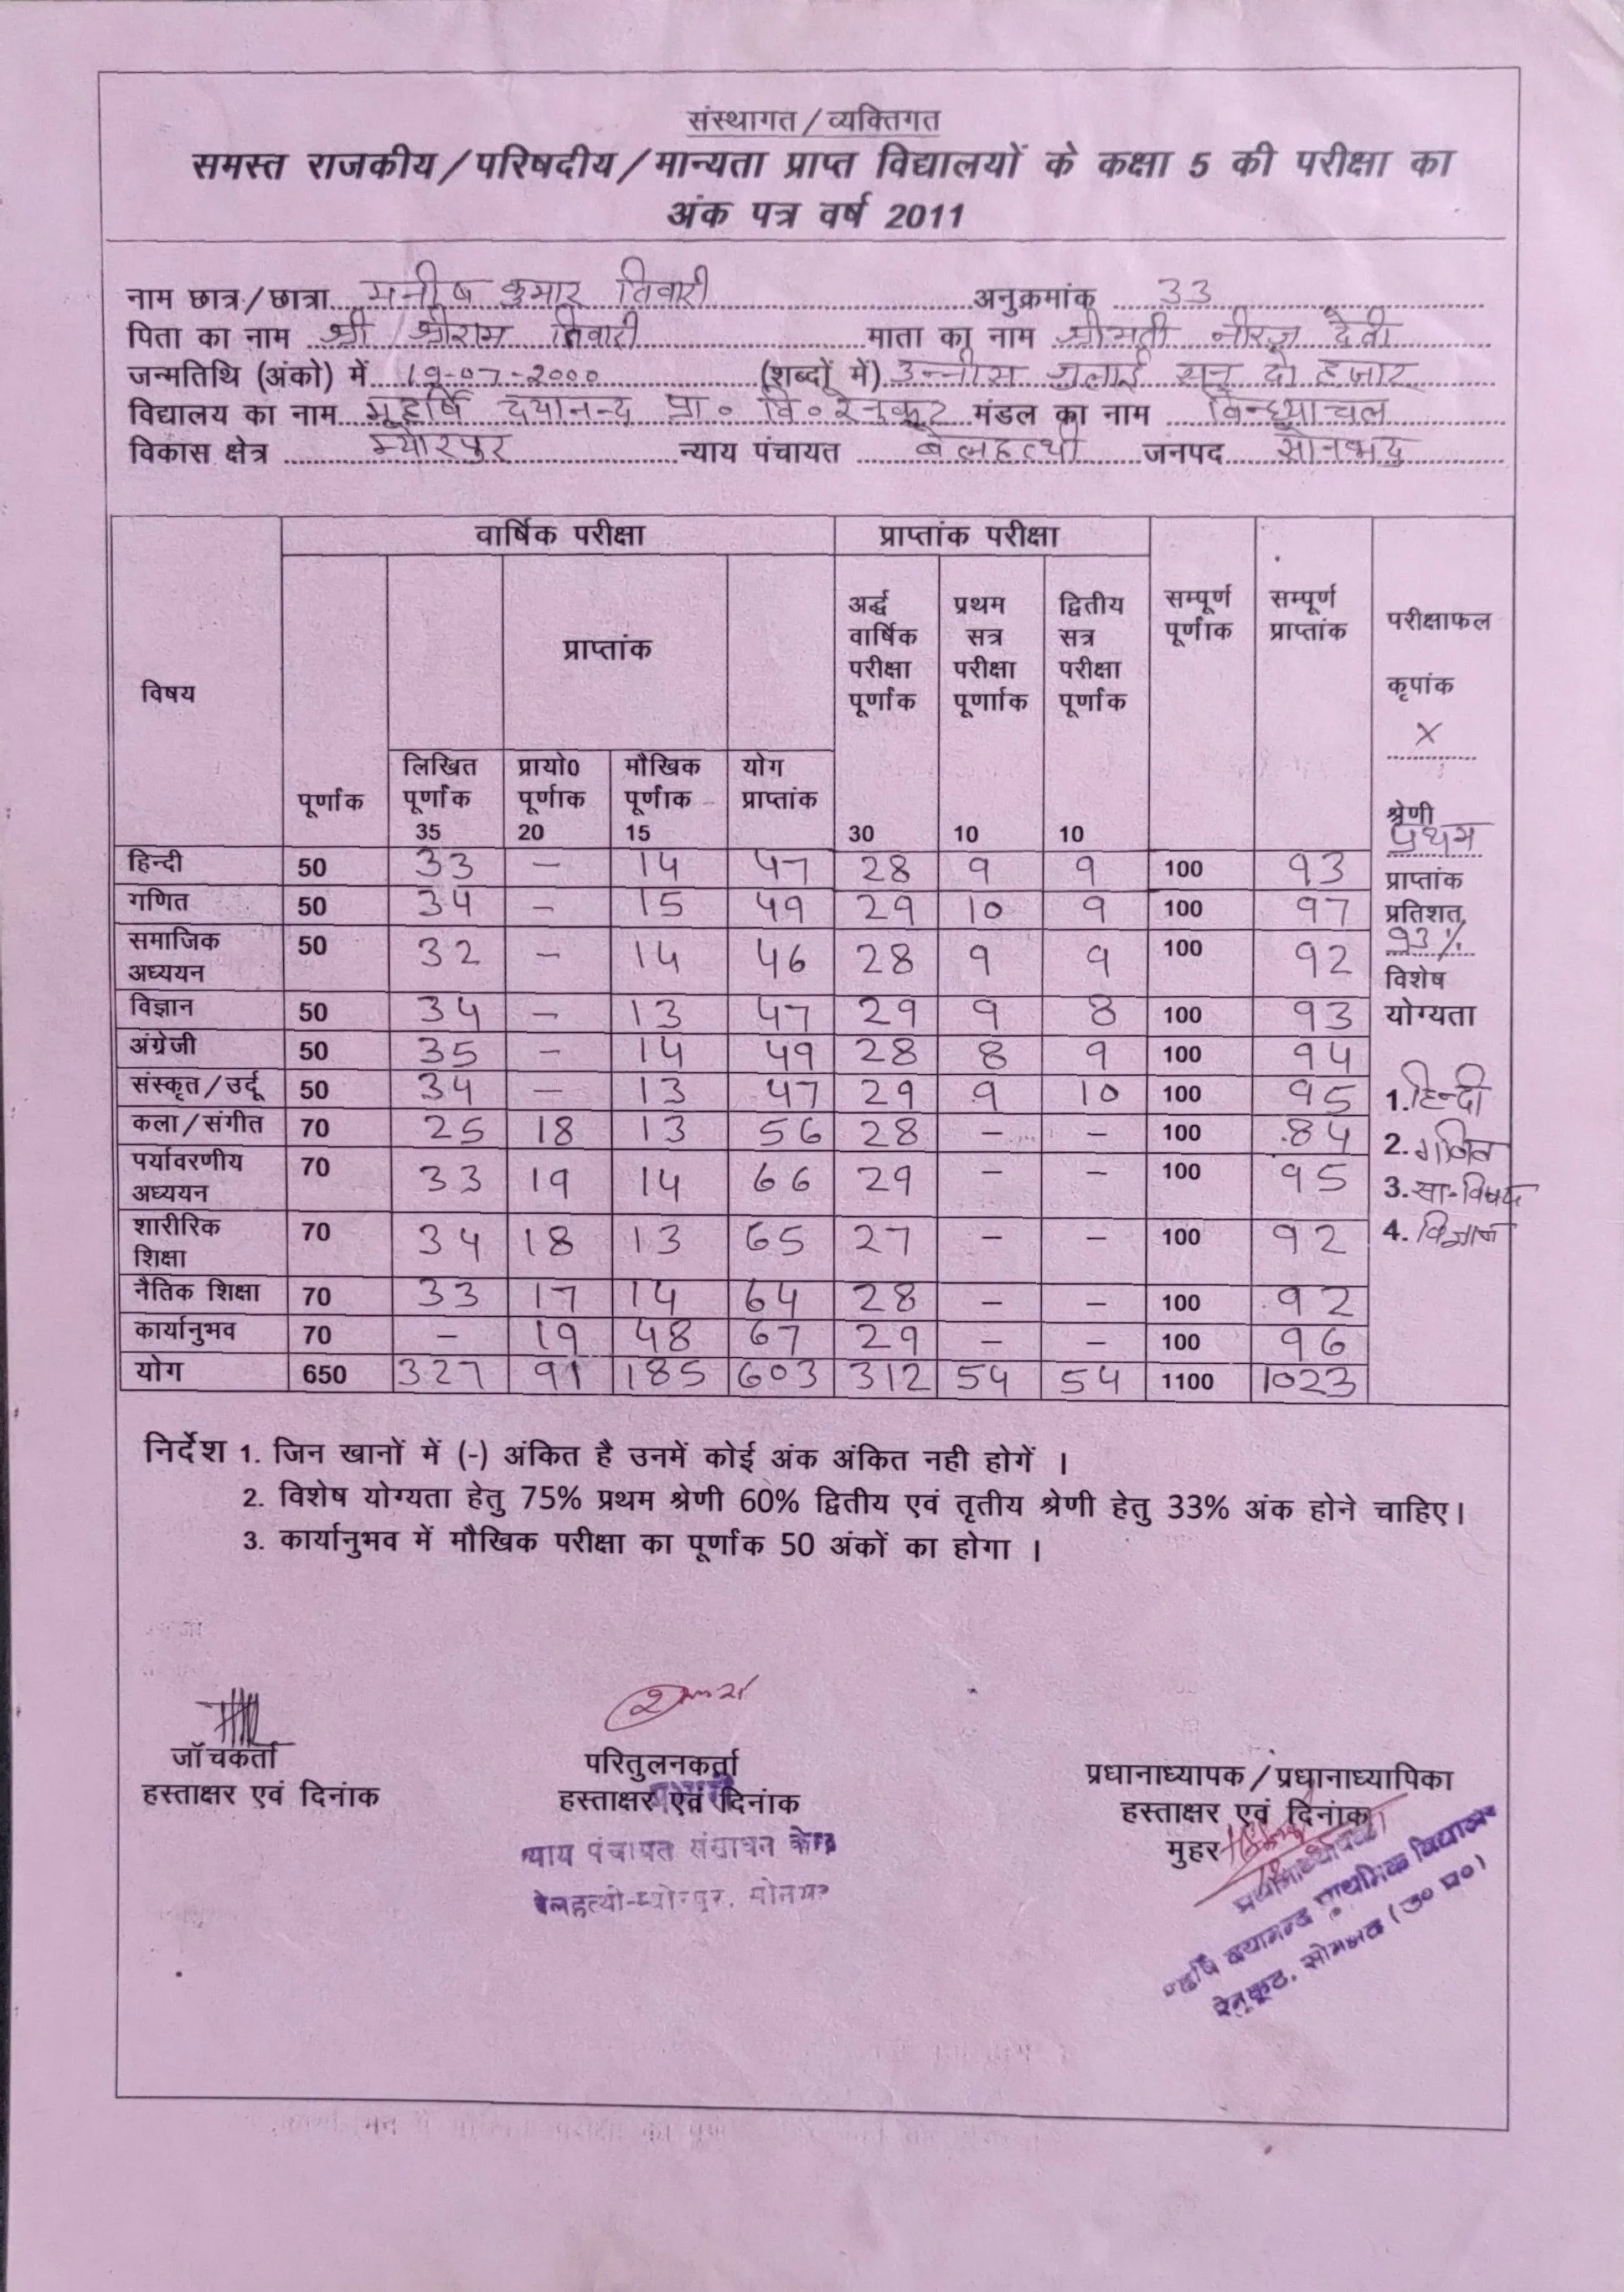 संस्थागत / व्यक्तिगत
समस्त राजकीय / परिषदीय / मान्यता प्राप्त विद्यालयों के कक्षा 5 की परीक्षा का
अंक पत्र वर्ष 2011
नाम छात्र / छात्रा मनीष कुमार तिवारी अनुक्रमांक 33
पिता का नाम श्री श्रीराम तिवारी माता का नाम श्रीमती नीरज देवी
जन्मतिथि (अंको) में 19-07-2000 (शब्दों में) उन्नीस जुलाई सन् दो हजार
विद्यालय का नाम महर्षि दयानन्द प्रा० वि० रेनुकूट मंडल का नाम विन्ध्याचल
विकास क्षेत्र म्योरपुर न्याय पंचायत बेलहत्थी जनपद सोनभद्र
वार्षिक परीक्षा प्राप्तांक परीक्षा
विषय पूर्णांक प्राप्तांक अर्द्ध वार्षिक परीक्षा पूर्णांक प्रथम सत्र परीक्षा पूर्णांक द्वितीय सत्र परीक्षा पूर्णांक सम्पूर्ण पूर्णांक सम्पूर्ण प्राप्तांक परीक्षाफल
लिखित पूर्णांक प्रायो0 पूर्णाक मौखिक पूर्णाक योग प्राप्तांक
35 20 15 30 10 10
हिन्दी 50 33 – 14 47 28 9 9 100 93
गणित 50 34 – 15 49 29 10 9 100 97
समाजिक अध्ययन 50 32 – 14 46 28 9 9 100 92
विज्ञान 50 34 – 13 47 29 9 8 100 93
अंग्रेजी 50 35 – 14 49 28 8 9 100 94
संस्कृत / उर्दू 50 34 – 13 47 29 9 10 100 95
कला / संगीत 70 25 18 13 56 28 – – 100 84
पर्यावरणीय अध्ययन 70 33 19 14 66 29 – – 100 95
शारीरिक शिक्षा 70 34 18 13 65 27 – – 100 92
नैतिक शिक्षा 70 33 17 14 64 28 – – 100 92
कार्यानुभव 70 – 19 48 67 29 – – 100 96
योग 650 327 91 185 603 312 54 54 1100 1023
कृपांक
X
श्रेणी
प्रथम
प्राप्तांक
प्रतिशत
93%
विशेष
योग्यता
1. हिन्दी
2. गणित
3. सा. विषय
4. विज्ञान
निर्देश 1. जिन खानों में (-) अंकित है उनमें कोई अंक अंकित नही होगें ।
2. विशेष योग्यता हेतु 75% प्रथम श्रेणी 60% द्वितीय एवं तृतीय श्रेणी हेतु 33% अंक होने चाहिए।
3. कार्यानुभव में मौखिक परीक्षा का पूर्णांक 50 अंकों का होगा ।
जॉचकर्ता
हस्ताक्षर एवं दिनांक
परितुलनकर्ता
हस्ताक्षर एवं दिनांक
न्याय पंचायत संसाधन केन्द्र
बेलहत्थी-म्योरपुर, सोनभद्र
प्रधानाध्यापक / प्रधानाध्यापिका
हस्ताक्षर एवं दिनांक
मुहर
प्रधानाध्यापिका
महर्षि दयानन्द प्राथमिक विद्यालय
रेनूकूट, सोनभद्र (उ० प्र०)